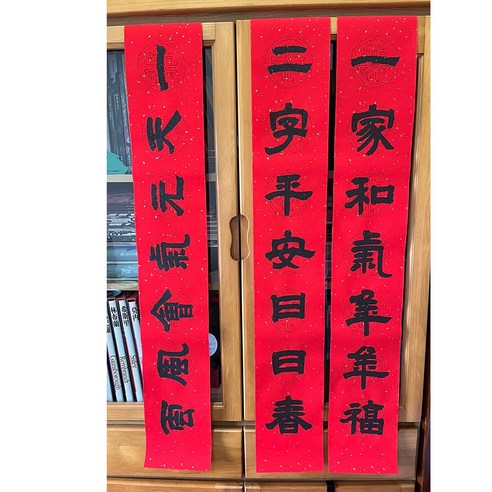 一家和氣年年福
二字平安日日春
一天元氣會風雲